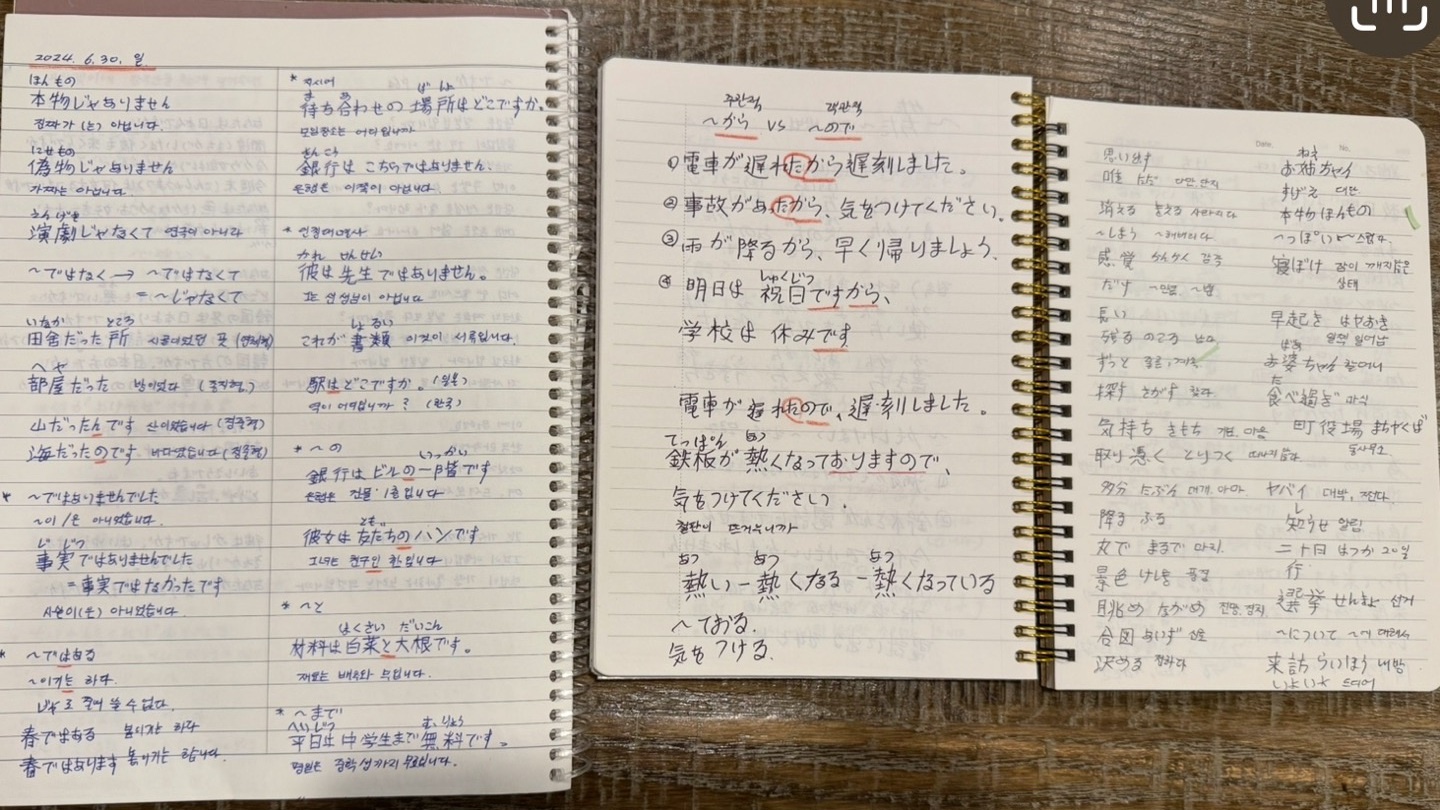 2024. 6. 30. 일
ほんもの
本物じゃありません
진짜가 (는) 아닙니다.
にせもの
偽物じゃありません
가짜는 아닙니다.
えんげき
演劇じゃなくて 연극이 아니라
〜ではなく → 〜ではなくて
= 〜じゃなくて
いなか ところ
田舎だった所 시골이었던 곳
ヘヤ
部屋だった 방이었다
山だったんです 산이었습니다
海だったのです 바다였습니다
* 〜ではありませんでした
〜이/은 아니었습니다.
じじつ
事実ではありませんでした
= 事実ではなかったです
사실이(은) 아니었습니다.
* 〜ではある
〜이기는 하다.
じゃ로 줄여 쓸 수 없다.
春ではある 봄이기는 하다
春ではあります 봄이기는 합니다.
* 지시어
ま あ ばしょ
待ち合わせの場所はどこですか.
모임장소는 어디입니까
ぎんこう
銀行は こちらではありません.
은행은 이쪽이 아닙니다
* 인칭대명사
かれ せんせい
彼は先生ではありません。
그는 선생님이 아닙니다
しょるい
これが 書類 이것이 서류입니다.
駅はどこですか (일본)
역이 어디입니까? (한국)
* 〜の
いっかい
銀行は ビルの一階です
은행은 건물 1층입니다
とも
彼女は友たちのハンです.
그녀는 친구인 한입니다
* 〜と
はくさい だいこん
材料は白菜と大根です。
재료는 배추와 무입니다.
* 〜まで
へいじつ むりょう
平日は中学生まで無料です。
평일은 중학생까지 무료입니다.
주관적 객관적
〜から vs 〜ので
① 電車が遅れたから遅刻しました。
② 事故があたから、気をつけてください.
③ 雨が降るから、早く帰りましょう.
しゅくじつ
④ 明日は 祝日ですから、
学校は 休みです
電車が 遅れたので、遅刻しました。
てっぱん あつ
鉄板が熱くなっておりますので、
気をつけてください.
철판이 뜨거우니까
あつ あつ あつ
熱い–熱くなる–熱くなっている
〜ておる.
気をつける.
Date. No.
思い出す
唯 ただ 다만, 단지
消える きえる 사라지다
〜しまう 〜해버리다
感覚 かんかく 감각
だす
長い
残る のこる 남다
ずっと
探す さがす 찾다
気持ち きもち 기분, 마음
取り憑く とりつく
多分 たぶん 대개, 아마
降る ふる
丸で まるで 마치.
景色 けしき 풍경
眺め ながめ
合図 あいず 신호
決める 정하다
ねえ
お姉ちゃん
すげえ 대단
本物 ほんもの
〜っぽい 〜스럽다
寝ぼけ 잠이 깨지않은
상태
早起き はやおき
일찍 일어남
ばあ
お婆ちゃん 할머니
た
食べ過ぎ 과식
町役場 まちやくば
동사무소
ヤバイ 대박, 쩐다.
し
知らせ 알림
二十日 はつか 20일
行
選挙 せんきょ 선거
〜について 〜에 대해서
来訪 らいほう 내방
いよいよ 드디어